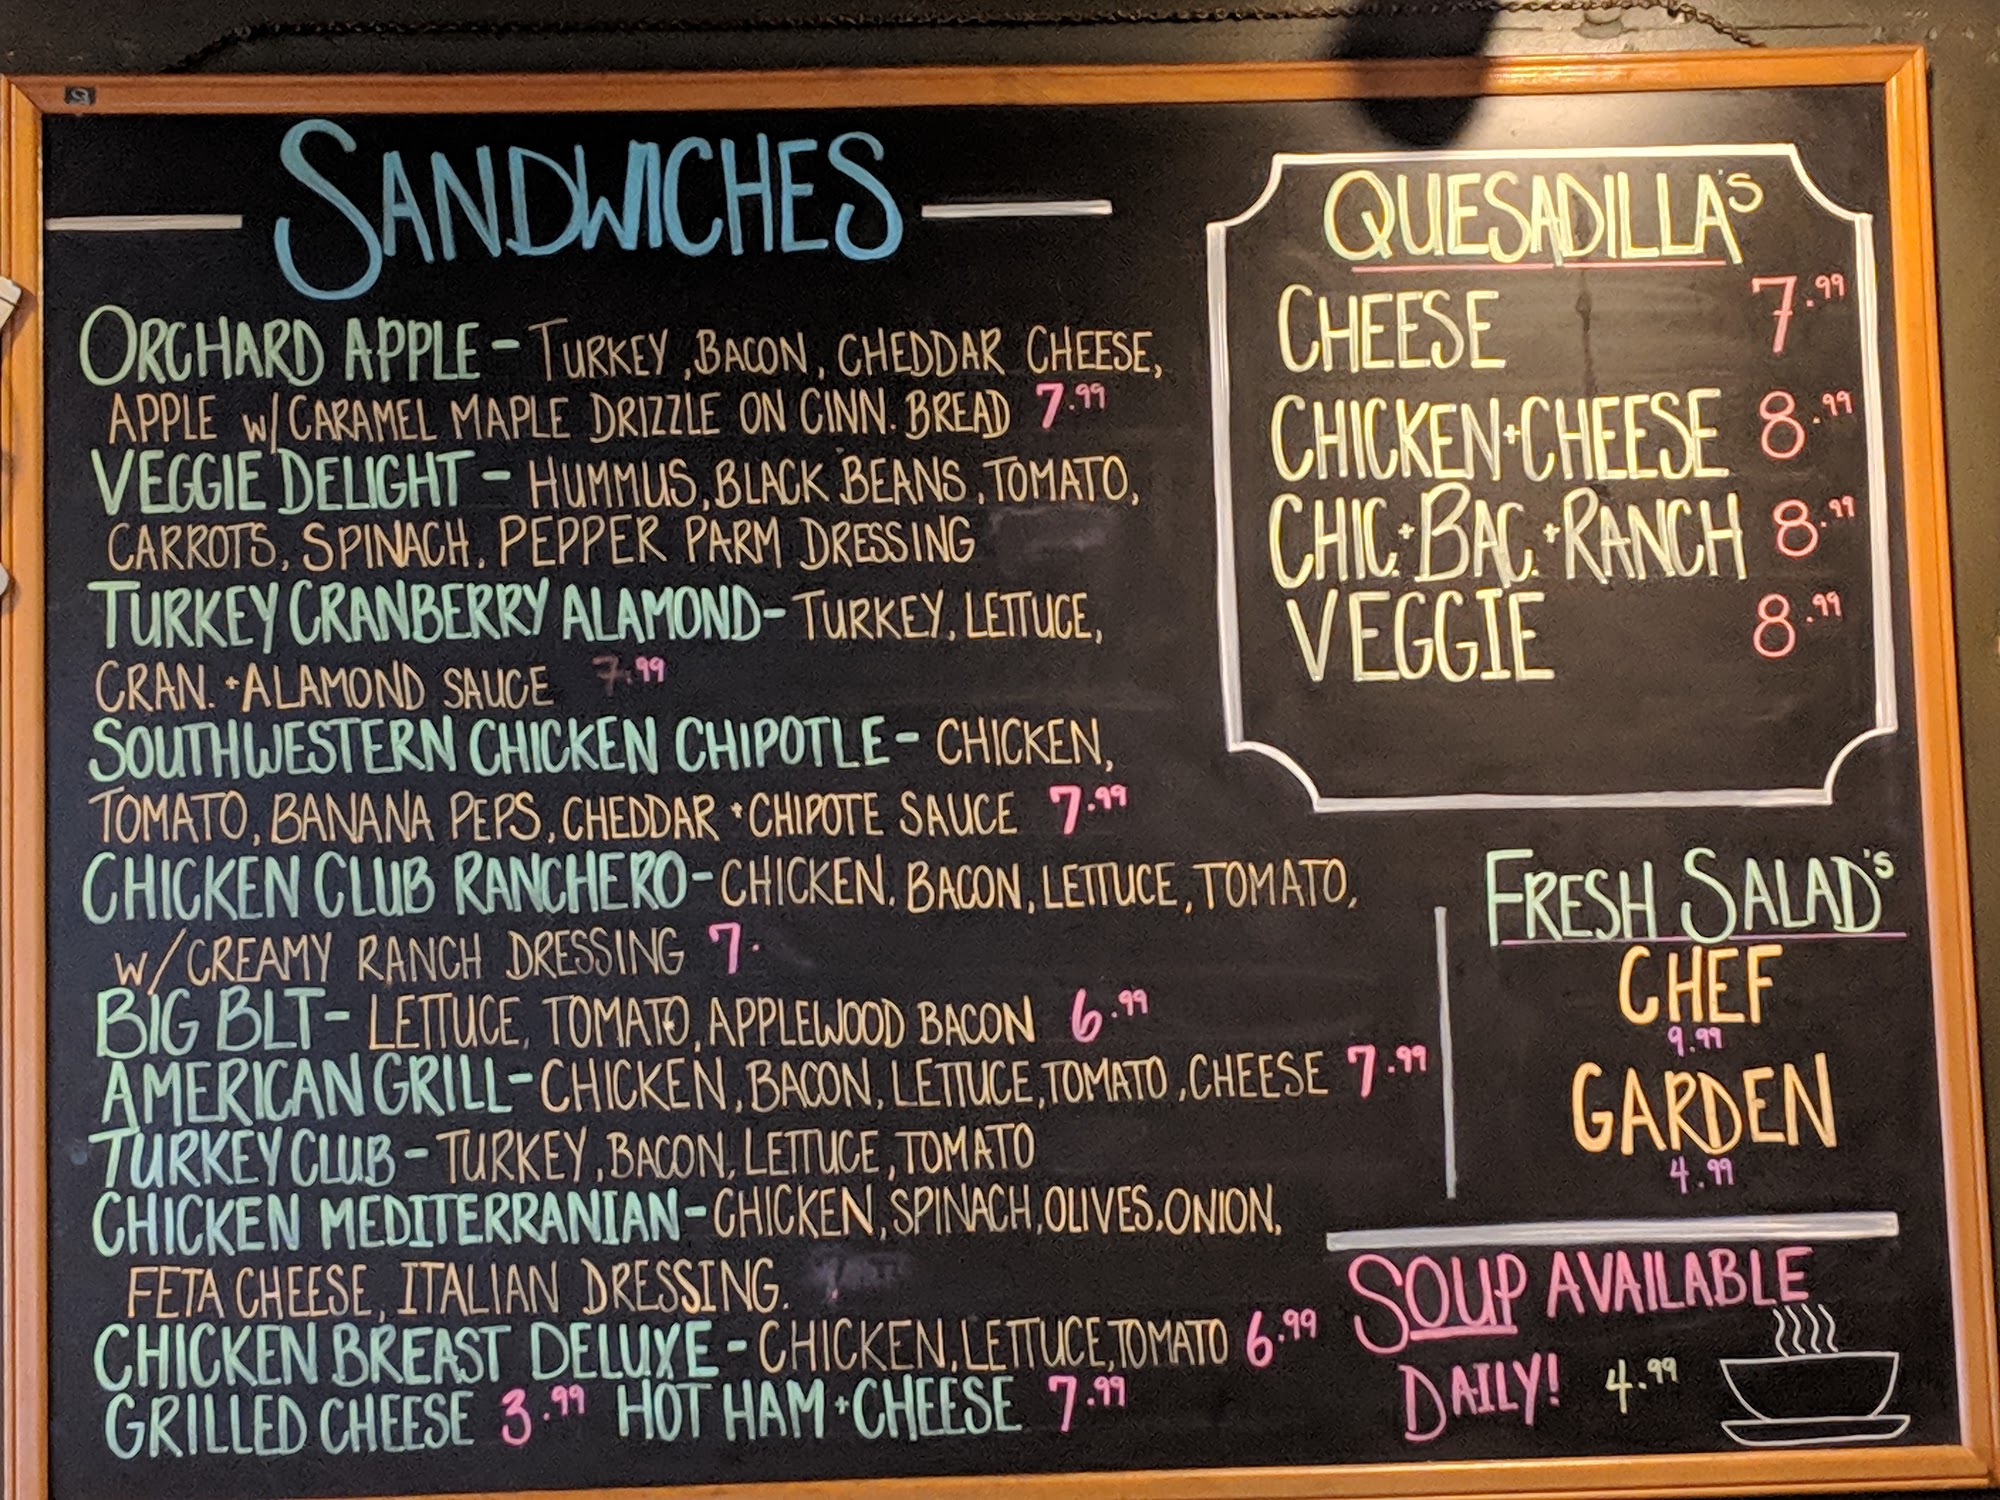 SANDWICHES
ORCHARD APPLE - TURKEY, BACON, CHEDDAR CHEESE,
APPLE w/ CARAMEL MAPLE DRIZZLE ON CINN. BREAD 7.99
VEGGIE DELIGHT - HUMMUS, BLACK BEANS, TOMATO,
CARROTS, SPINACH, PEPPER PARM DRESSING
TURKEY CRANBERRY ALAMOND - TURKEY, LETTUCE,
CRAN. + ALAMOND SAUCE 7.99
SOUTHWESTERN CHICKEN CHIPOTLE - CHICKEN,
TOMATO, BANANA PEPS, CHEDDAR + CHIPOTE SAUCE 7.99
CHICKEN CLUB RANCHERO - CHICKEN, BACON, LETTUCE, TOMATO,
w/ CREAMY RANCH DRESSING 7.
BIG BLT - LETTUCE, TOMATO, APPLEWOOD BACON 6.99
AMERICAN GRILL - CHICKEN, BACON, LETTUCE, TOMATO, CHEESE 7.99
TURKEY CLUB - TURKEY, BACON, LETTUCE, TOMATO
CHICKEN MEDITERRANIAN - CHICKEN, SPINACH, OLIVES, ONION,
FETA CHEESE, ITALIAN DRESSING.
CHICKEN BREAST DELUXE - CHICKEN, LETTUCE, TOMATO 6.99
GRILLED CHEESE 3.99 HOT HAM + CHEESE 7.99
QUESADILLA'S
CHEESE 7.99
CHICKEN + CHEESE 8.99
CHIC. + BAC. + RANCH 8.99
VEGGIE 8.99
FRESH SALAD'S
CHEF
9.99
GARDEN
4.99
SOUP AVAILABLE
DAILY! 4.99